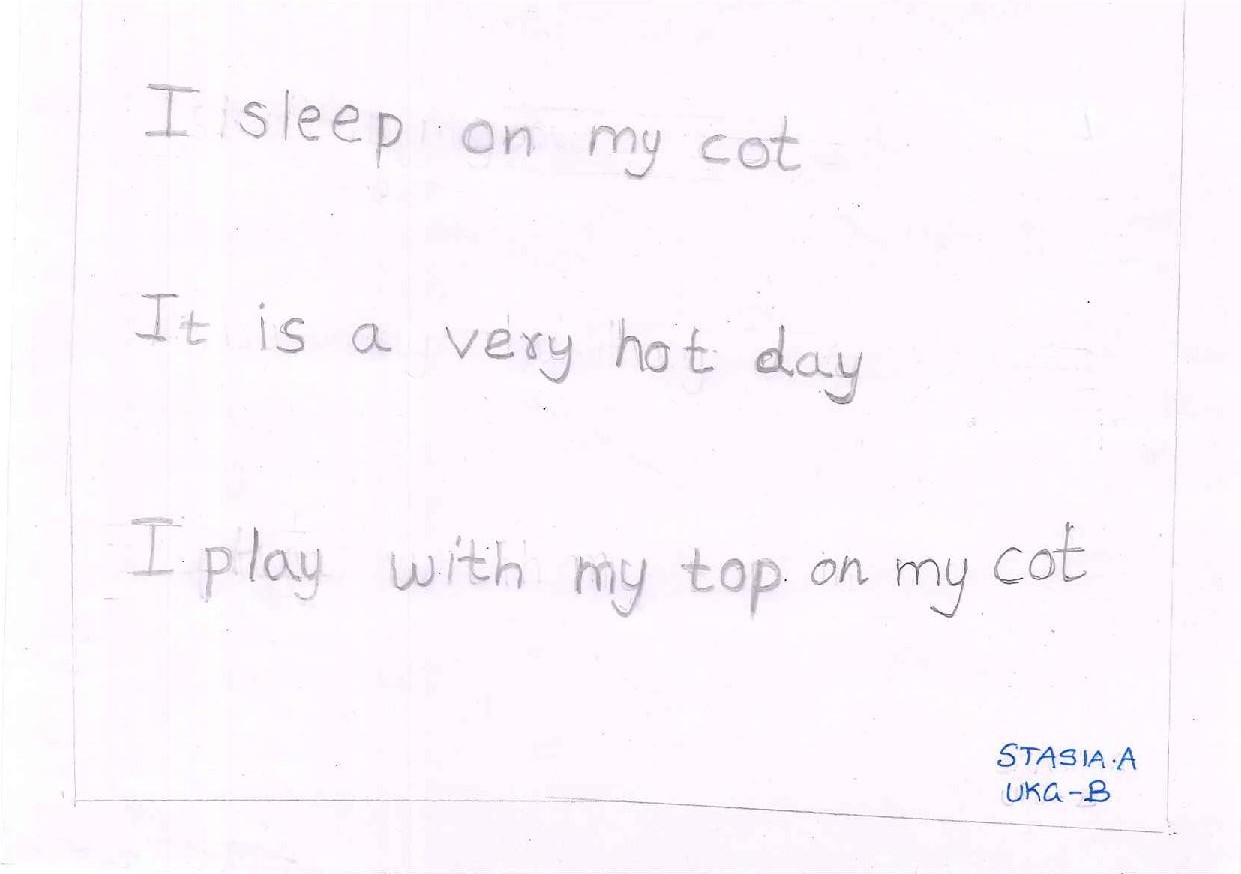 I sleep on my cot
It is a very hot day
I play with my top on my cot
STASIA.A
UKG-B